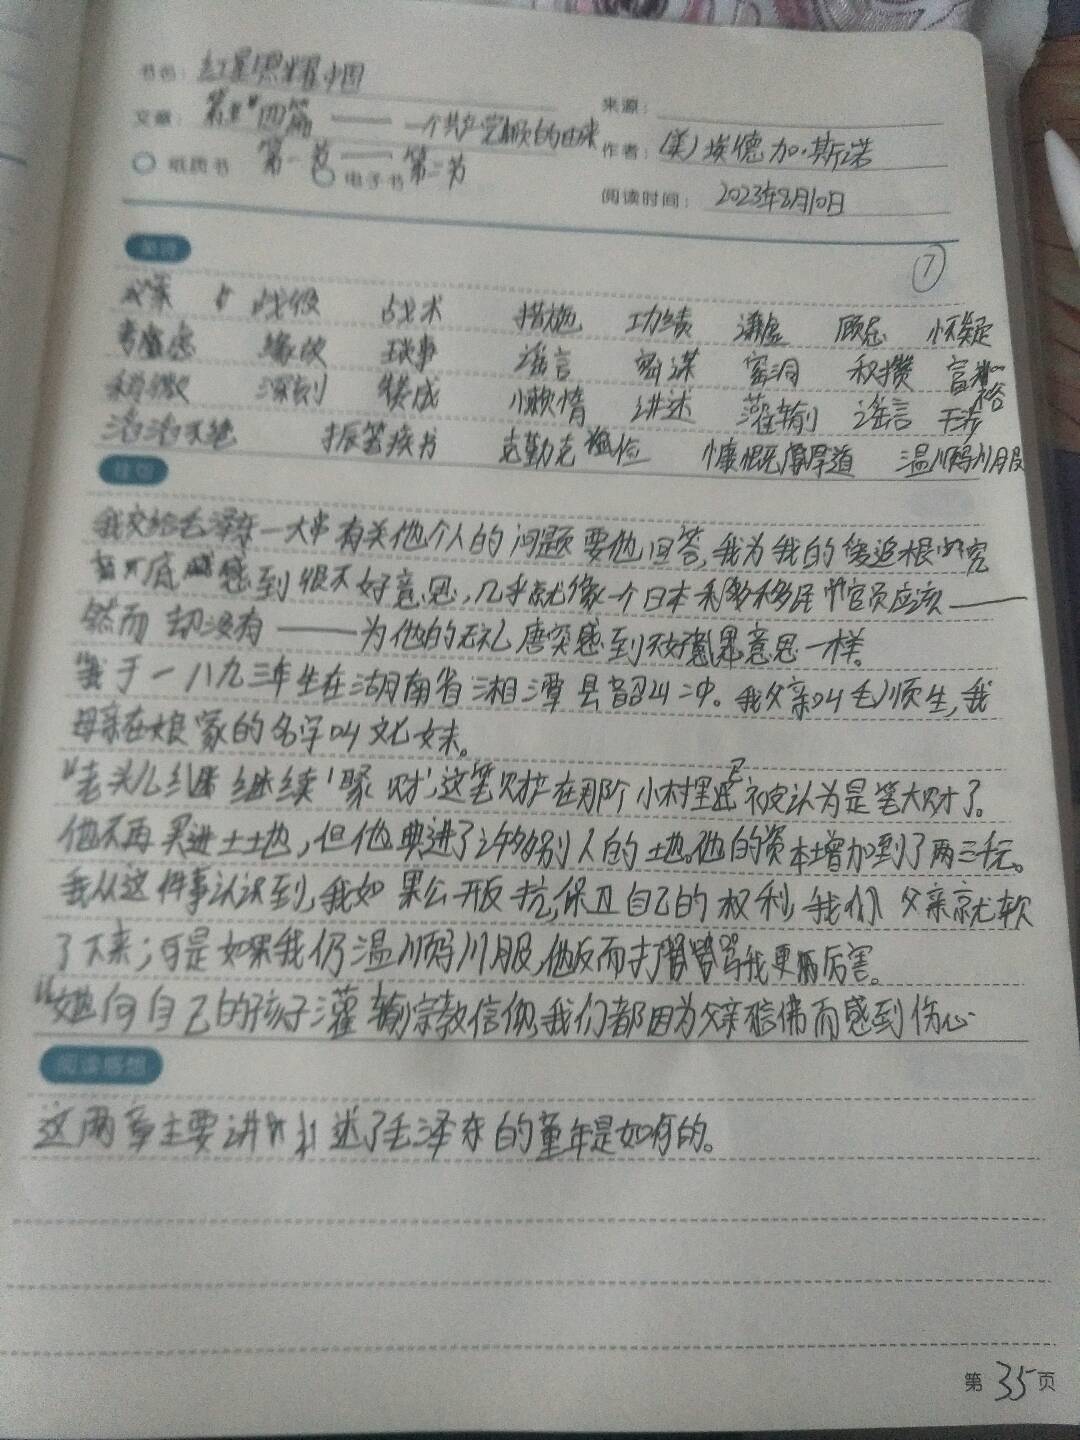 书名： 红星照耀中国
文章： 第四篇 —— 一个共产党员的由来
来源：
作者： （美）埃德加·斯诺
纸质书 第一节 —— 电子书 第二节
阅读时间： 2023年8月10日
7
政策 战役 战术 措施 功绩 谦虚 顾忌 怀疑
考虑 缘故 琐事 谣言 密谋 窑洞 积攒 富裕
稍微 深刻 赞成 懒惰 讲述 灌输 谣言 干涉
滔滔不绝 振笔疾书 克勤克俭 慷慨厚道 温顺驯服
佳句
我交给毛泽东一大串有关他个人的问题要他回答，我为我的追根究
底感到很不好意思，几乎就像一个日本移民官员应该——
然而却没有——为他的无礼唐突感到不好意思一样。
“我于一八九三年生在湖南省湘潭县韶山冲。我父亲叫毛顺生，我
母亲在娘家的名字叫文七妹。
“老头儿继续‘聚财’，这笔财产在那个小村里已被认为是笔大财了。
他不再买进土地，但他典进了许多别人的地。他的资本增加到了两三千元。
我从这件事认识到，我如果公开反抗，保卫自己的权利，我们父亲就软
了下来；可是如果我仍温顺驯服，他反而打骂我更厉害。
“她向自己的孩子灌输宗教信仰，我们都因为父亲不信佛而感到伤心
阅读感想
这两章主要讲述了毛泽东的童年是如何的。
第 35 页